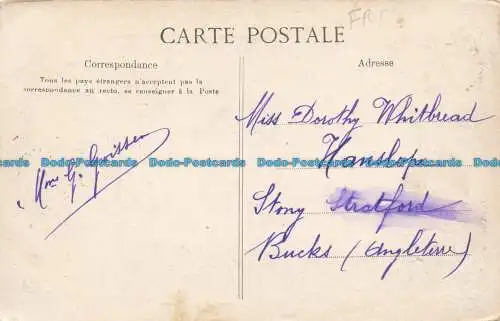 CARTE POSTALE
Correspondance
Tous les pays étrangers n'acceptent pas la
correspondance au recto, se renseigner à la Poste
Mme G.
Adresse
Miss Dorothy Whitbread
Hanslope
Stony Stratford
Bucks (Angleterre)
Dodo-Postcards Dodo-Postcards Dodo-Postcards Dodo-Postcards Dodo-Postcards